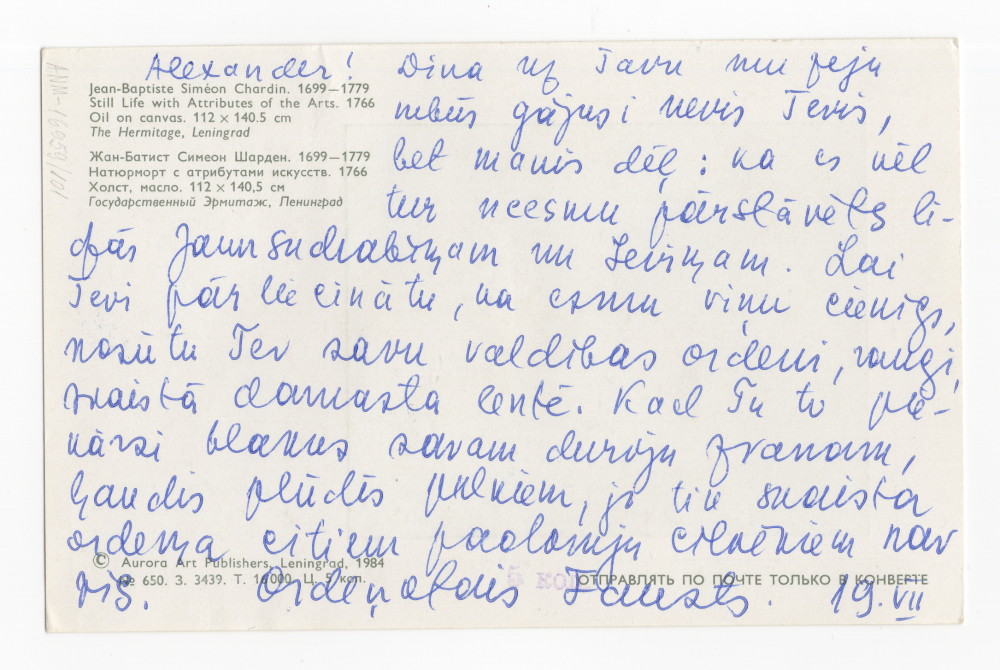 Alexander! Dina uz Tavu nu jeju
Jean-Baptiste Siméon Chardin. 1699—1779
Still Life with Attributes of the Arts. 1766
Oil on canvas. 112 × 140.5 cm
The Hermitage, Leningrad
Жан-Батист Симеон Шарден. 1699—1779
Натюрморт с атрибутами искусств. 1766
Холст, масло. 112 × 140,5 см
Государственный Эрмитаж, Ленинград
ANM-16059/101
nebūs gājusi nevis Tevis,
bet manis dēļ: ka es vēl
tur neesmu pārstāvēts li-
dzās Jaunsudrabiņam un Ieviņam. Lai
Tevi pārliecinātu, ka esmu viņu cienīgs,
nosūtu Tev savu valdības ordeni, vaigi,
skaistā damasta lentē. Kad Tu to pie-
kārsi blakus savam durvju zvanam,
ļaudis plūdīs pulkiem, jo tik skaista
ordeņa citiem padomju cilvēkiem nav
© Aurora Art Publishers, Leningrad, 1984
№ 650. З. 3439. Т. 16000. Ц. 5 коп.
5 коп
ОТПРАВЛЯТЬ ПО ПОЧТЕ ТОЛЬКО В КОНВЕРТЕ
bijis. Ordeņotais Fausts. 19.VII